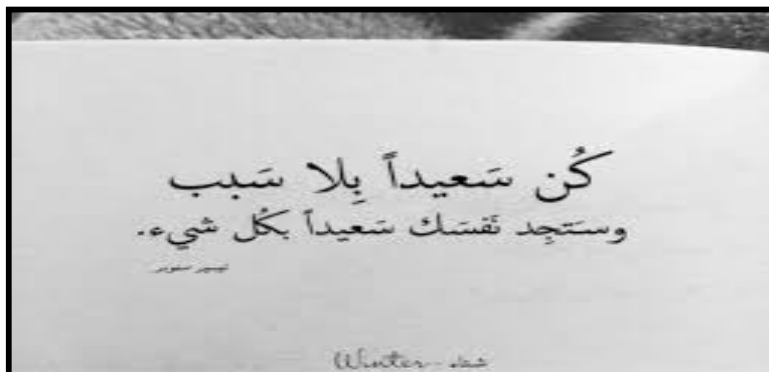 كُن سَعيداً بِلا سَبب
وسَتجِد نَفسَك سَعيداً بكُل شيء.
Winter - شتاء